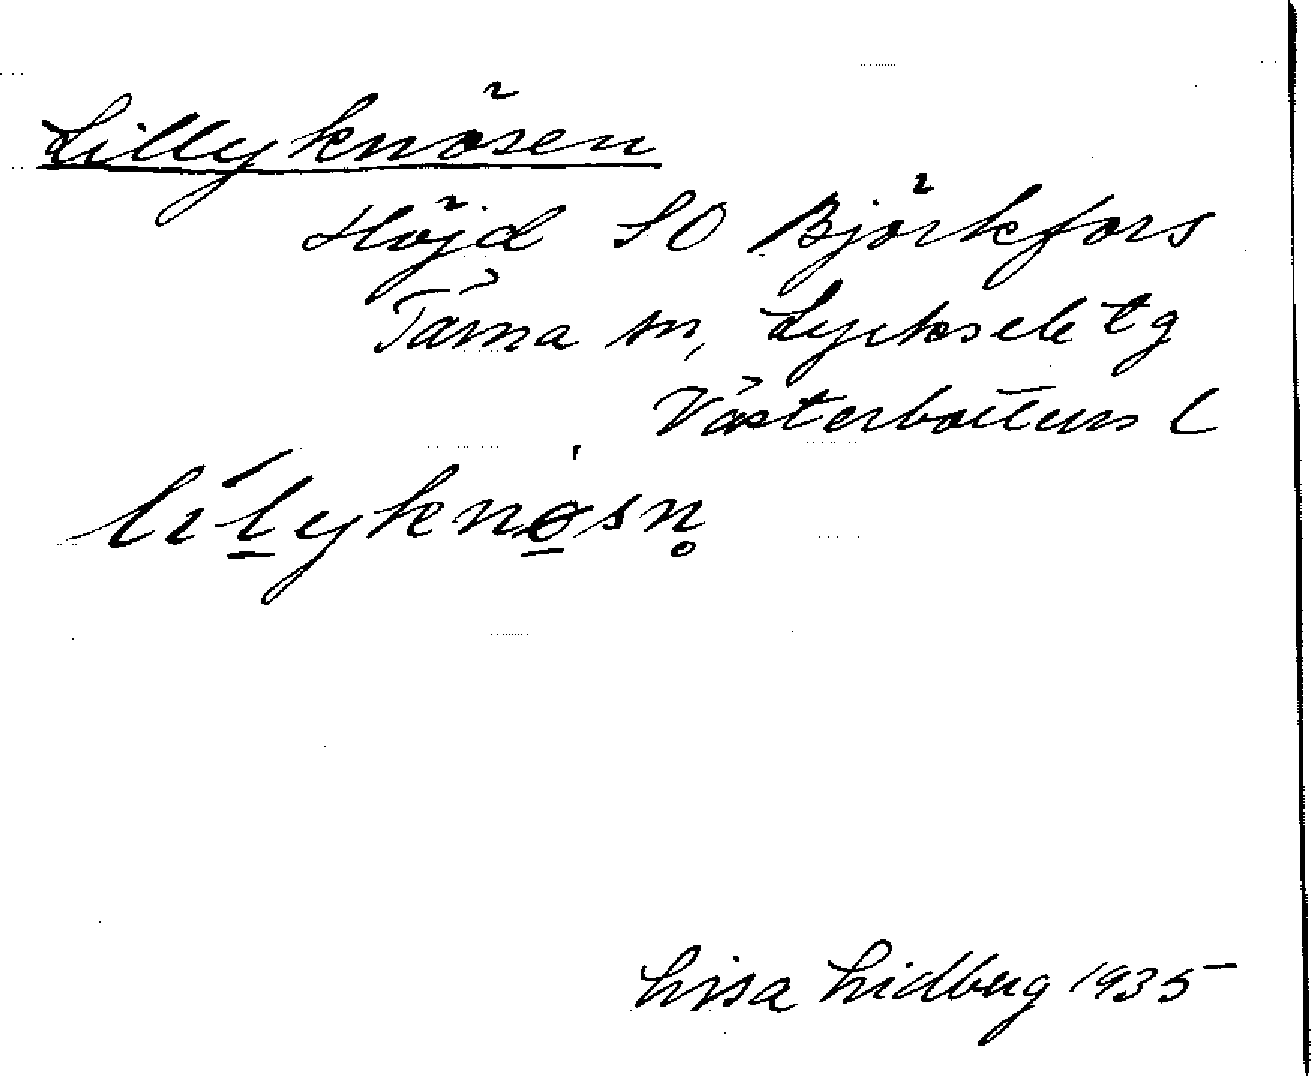 Lillyknösen
Höjd SO Björkfors
Tärna sn, Lycksele tg
Västerbottens l
lilyknøsn̥
Lisa Lidberg 1935